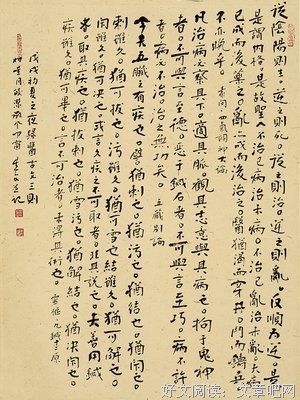 從陰陽則生。逆之則死。從之則治。逆之則亂。反順為逆。
是謂內格。是故聖人不治已病治未病。不治已亂治未亂。夫病
已成而後藥之。亂已成而後治之。譬猶渴而穿井。鬥而鑄錐。
不亦晚乎。素問 四氣調神大論
凡治病必察其下。適其脈。觀其志意與其病也。拘于鬼神
者。不可與言至德。惡于鍼石者。不可與言至巧。病不許
治者。病必不治。治之無功矣。五藏別論
今夫五臟之有疾也。譬猶刺也。猶污也。猶結也。猶閉也。
刺雖久。猶可拔也。污雖久。猶可雪也。結雖久。猶可解也。
閉雖久。猶可決也。或言久疾之不可取者。非其說也。夫善用鍼
者。取其疾也。猶拔刺也。猶雪污也。猶解結也。猶決閉也。
疾雖久。猶可畢也。言不可治者。未得其術也。靈樞 九鍼十二原
戊戌初夏之夜錄醫古文三則
好文阅读：文章吧网